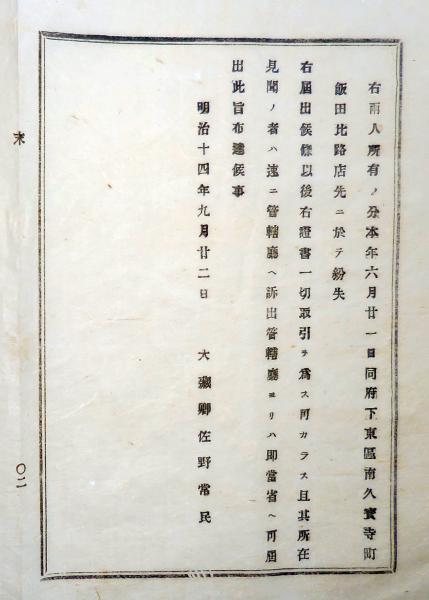 右兩人所有ノ分本年六月廿一日同府下東區南久寳寺町
飯田比路店先ニ於テ紛失
右届出候條以後右證書一切取引ヲ爲ス可カラス且其所在
見聞ノ者ハ速ニ管轄廳ヘ訴出管轄廳ヨリハ即當省ヘ可届
出此旨布達候事
明治十四年九月廿二日 大藏卿佐野常民
末
〇二